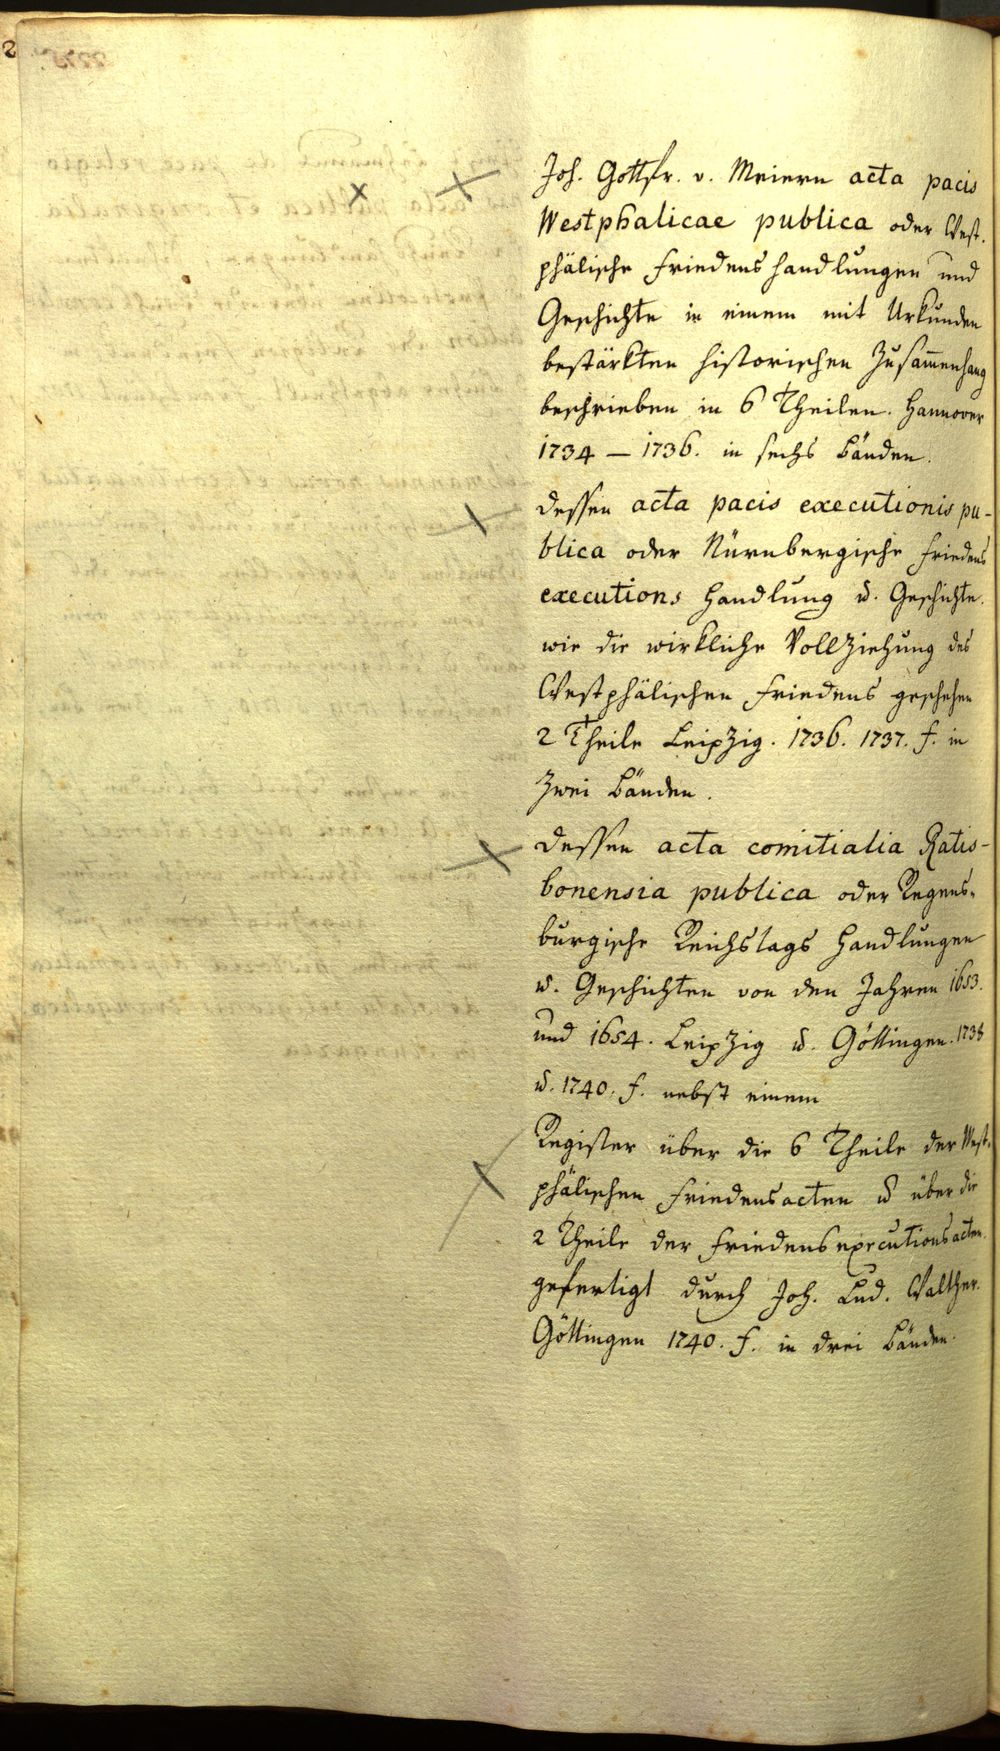 Joh. Gottfr. v. Meiern acta pacis
Westphalicae publica oder West-
phälische Friedenshandlungen und
Geschichte in einem mit Urkunden
bestärkten historischen Zusam̄enhang
beschrieben in 6 Theilen. Hannover
1734 — 1736. in sechs Bänden.
Dessen acta pacis executionis pu-
blica oder Nürnbergische Friedens
executions Handlung u. Geschichte.
wie die wirkliche Vollziehung des
Westphälischen Friedens geschehen
2 Theile Leipzig. 1736. 1737. f. in
zwei Bänden.
Dessen acta comitialia Ratis-
bonensia publica oder Regens-
burgische Reichstags Handlungen
u. Geschichten von den Jahren 1653.
und 1654. Leipzig u. Göttingen. 1738
u. 1740. f. nebst einem
Register über die 6 Theile der West-
phälischen Friedensacten u über die
2 Theile der Friedensexecutionsacten.
gefertigt durch Joh. Lud. Walther.
Göttingen 1740. f. in drei Bänden.